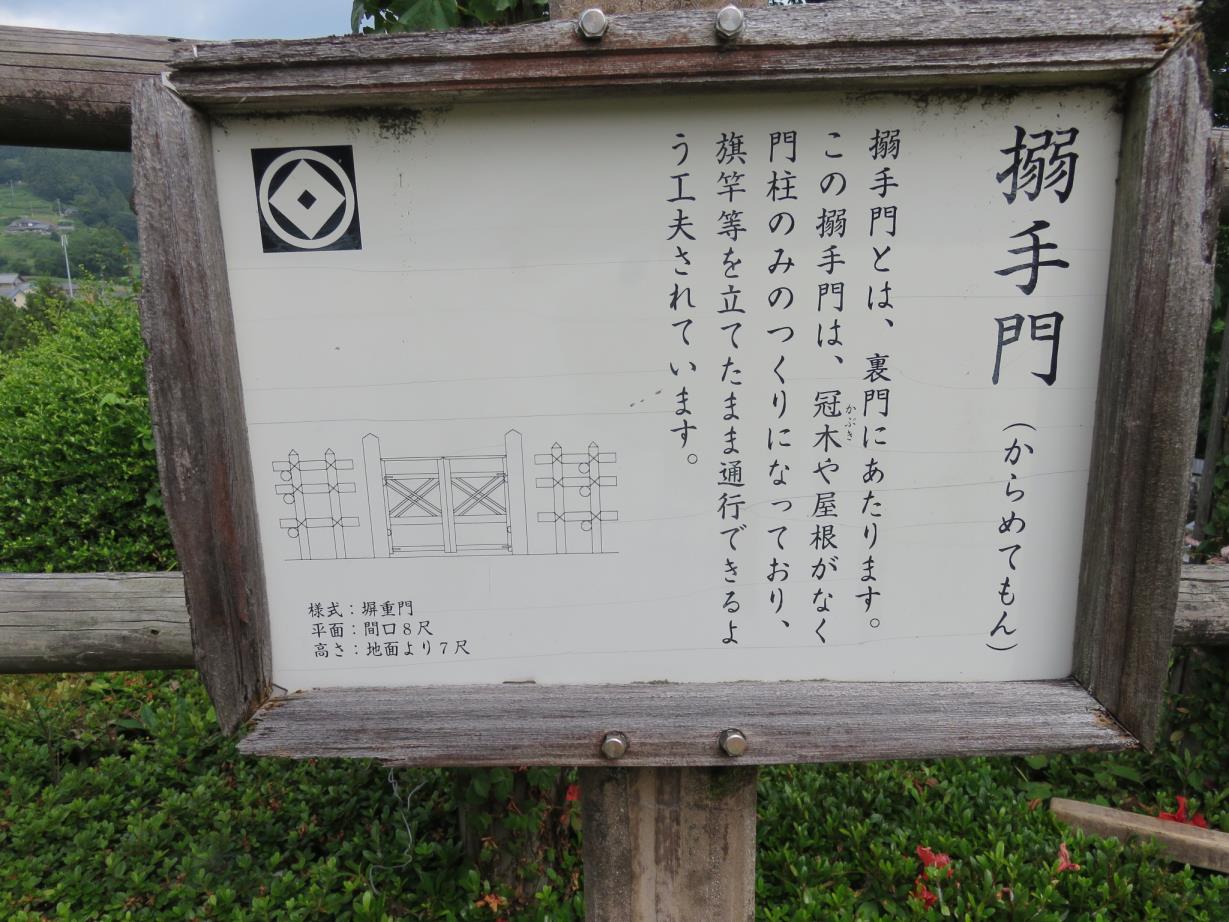 搦手門(からめてもん)
搦手門とは、裏門にあたります。
この搦手門は、冠木や屋根がなく
かぶき
門柱のみのつくりになっており、
旗竿等を立てたまま通行できるよ
う工夫されています。
様式:塀重門
平面:間口8尺
高さ:地面より7尺